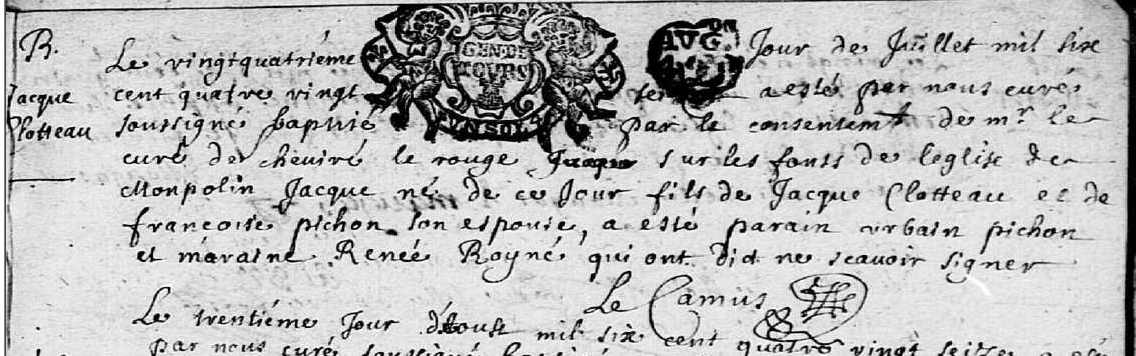 B.
Jacque
Clotteau
GEN. DE
TOURS
VN SOL
AVG.
Le vingtquatriéme Jour de Juillet mil six
cent quatre vingt a esté par nous curé
soussigné baptisé par le consentemt de mr le
curé de cheviré le rouge sur les fonts de leglise de
Monpolin Jacque né de ce Jour fils de Jacque Clotteau et de
francoise pichon son espouse, a esté parain urbain pichon
et maraine Renée Royné qui ont dict ne scavoir signer
Le Camus
Le trentiéme Jour mil six cent quatre vingt seitze
par nous curé soussigné